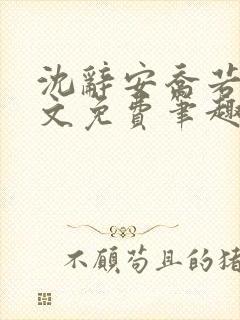 沈辭安喬若
文免費筆趣
不顧苟且的猪